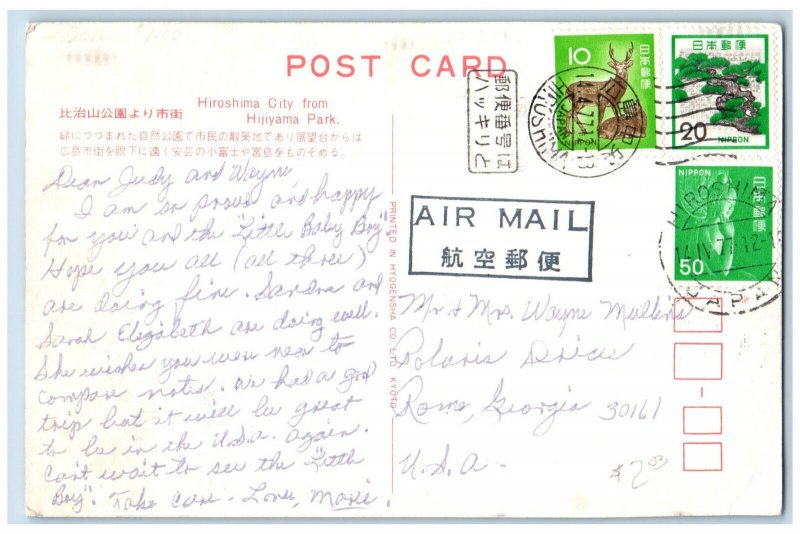 POST CARD
比治山公園より市街
Hiroshima City from
Hijiyama Park.
緑につつまれた自然公園で市民の散策地であり展望台からは
広島市街を眼下に遠く安芸の小富士や宮島をものぞめる。
Dear Judy and Wayne,
I am so proud and happy
for you and the "Little Baby Boy".
Hope you all (all three)
are doing fine. Sandra and
Sarah Elizabeth are doing well.
She wishes you were near to
compare notes. We had a good
trip but it will be great
to be in the U.S.A. again.
Can't wait to see the "Little
Boy". Take care. Love, Marie.
PRINTED IN HYOGENSHA CO., LTD KYOTO
郵便番号は
ハッキリと
10
日本郵便
NIPPON
日本郵便
20
NIPPON
NIPPON
日本郵便
50
HIROSHIMA
JAPAN
HIROSHIMA
14.IV.77.12-
JAPAN
AIR MAIL
航空郵便
Mr + Mrs. Wayne Mullins
Polaris Drive
Rome, Georgia 30161
U.S.A.